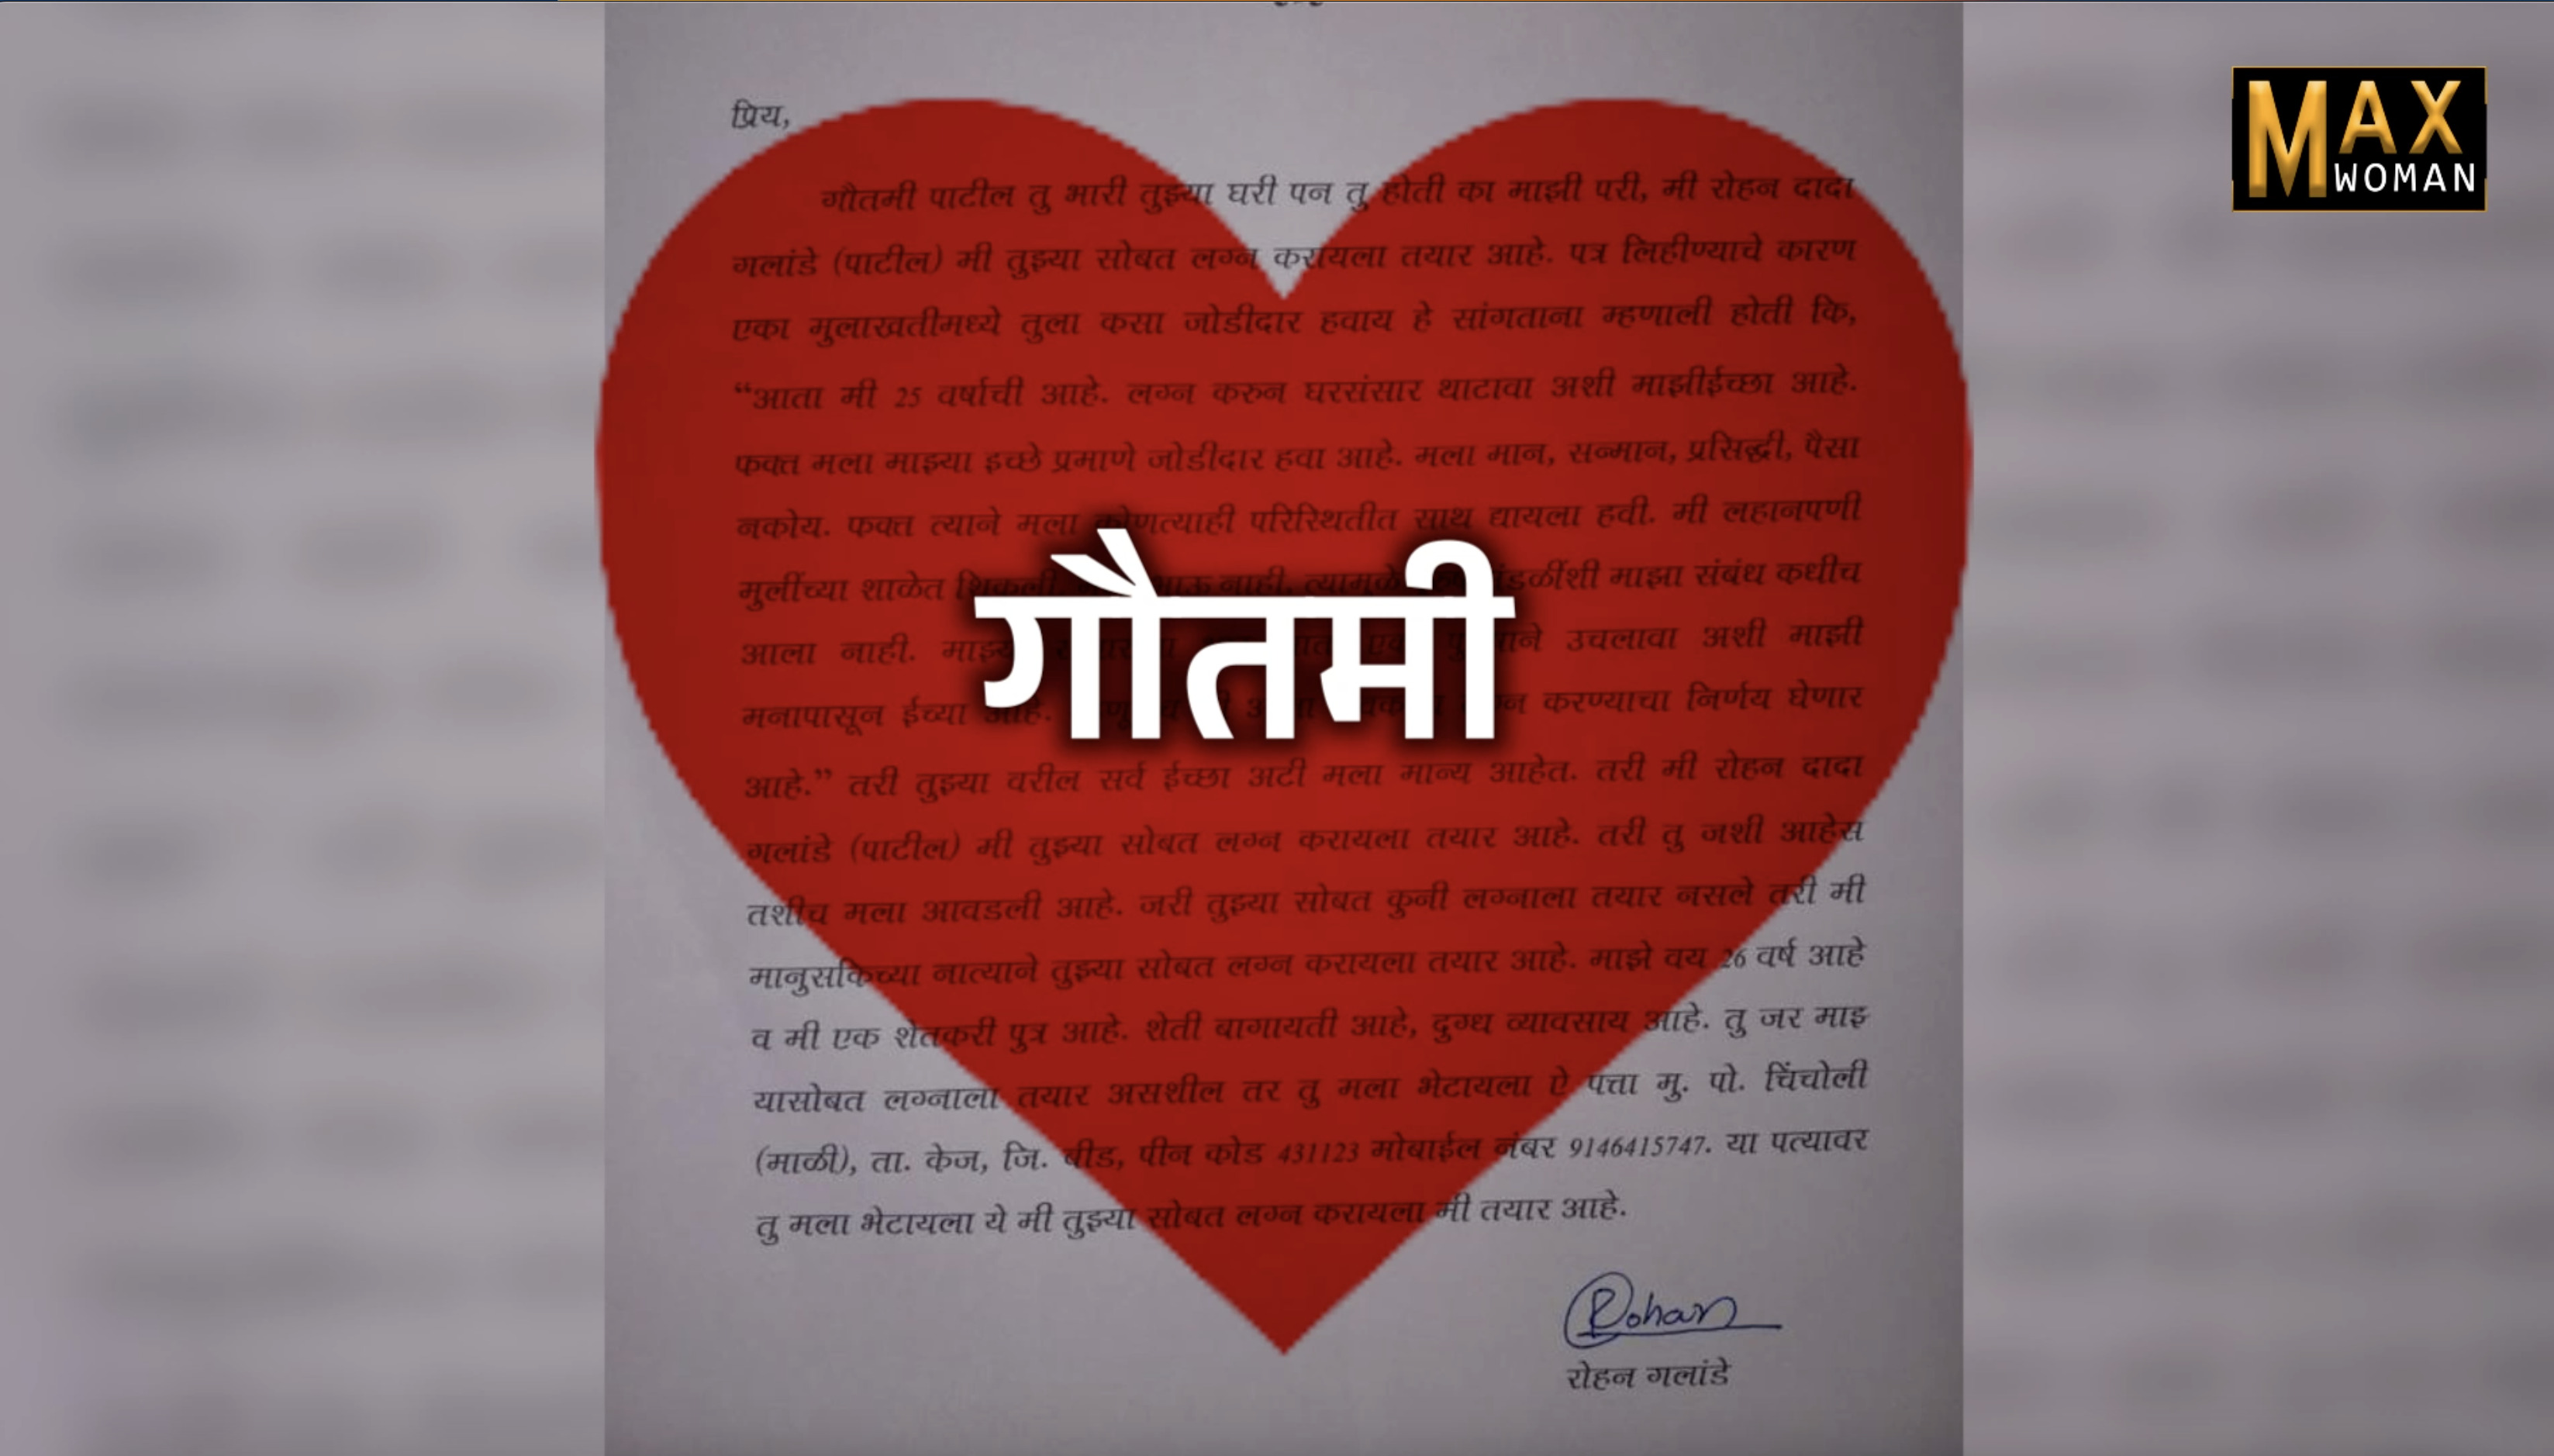 MAX
WOMAN
प्रिय,
गौतमी पाटील तु भारी तुझ्या घरी पन तु होती का माझी परी, मी रोहन दादा
गलांडे (पाटील) मी तुझ्या सोबत लग्न करायला तयार आहे. पत्र लिहीण्याचे कारण
एका मुलाखतीमध्ये तुला कसा जोडीदार हवाय हे सांगताना म्हणाली होती कि,
“आता मी 25 वर्षाची आहे. लग्न करुन घरसंसार थाटावा अशी माझीईच्छा आहे.
फक्त मला माझ्या इच्छे प्रमाणे जोडीदार हवा आहे. मला मान, सन्मान, प्रसिद्धी, पैसा
नकोय. फक्त त्याने मला कोणत्याही परिस्थितीत साथ द्यायला हवी. मी लहानपणी
मुलींच्या शाळेत शिकली नाही. त्यामुळे माझा संबंध कधीच
आला नाही. उचलावा अशी माझी
मनापासून ईच्या आहे. करण्याचा निर्णय घेणार
गौतमी
आहे.” तरी तुझ्या वरील सर्व ईच्छा अटी मला मान्य आहेत. तरी मी रोहन दादा
गलांडे (पाटील) मी तुझ्या सोबत लग्न करायला तयार आहे. तरी तु जशी आहेस
तशीच मला आवडली आहे. जरी तुझ्या सोबत कुनी लग्नाला तयार नसले तरी मी
मानुसकिच्या नात्याने तुझ्या सोबत लग्न करायला तयार आहे. माझे वय 26 वर्ष आहे
व मी एक शेतकरी पुत्र आहे. शेती बागायती आहे, दुग्ध व्यावसाय आहे. तु जर माझ
यासोबत लग्नाला तयार असशील तर तु मला भेटायला ऐ पत्ता मु. पो. चिंचोली
(माळी), ता. केज, जि. बीड, पीन कोड 431123 मोबाईल नंबर 9146415747. या पत्यावर
तु मला भेटायला ये मी तुझ्या सोबत लग्न करायला मी तयार आहे.
Rohan
रोहन गलांडे